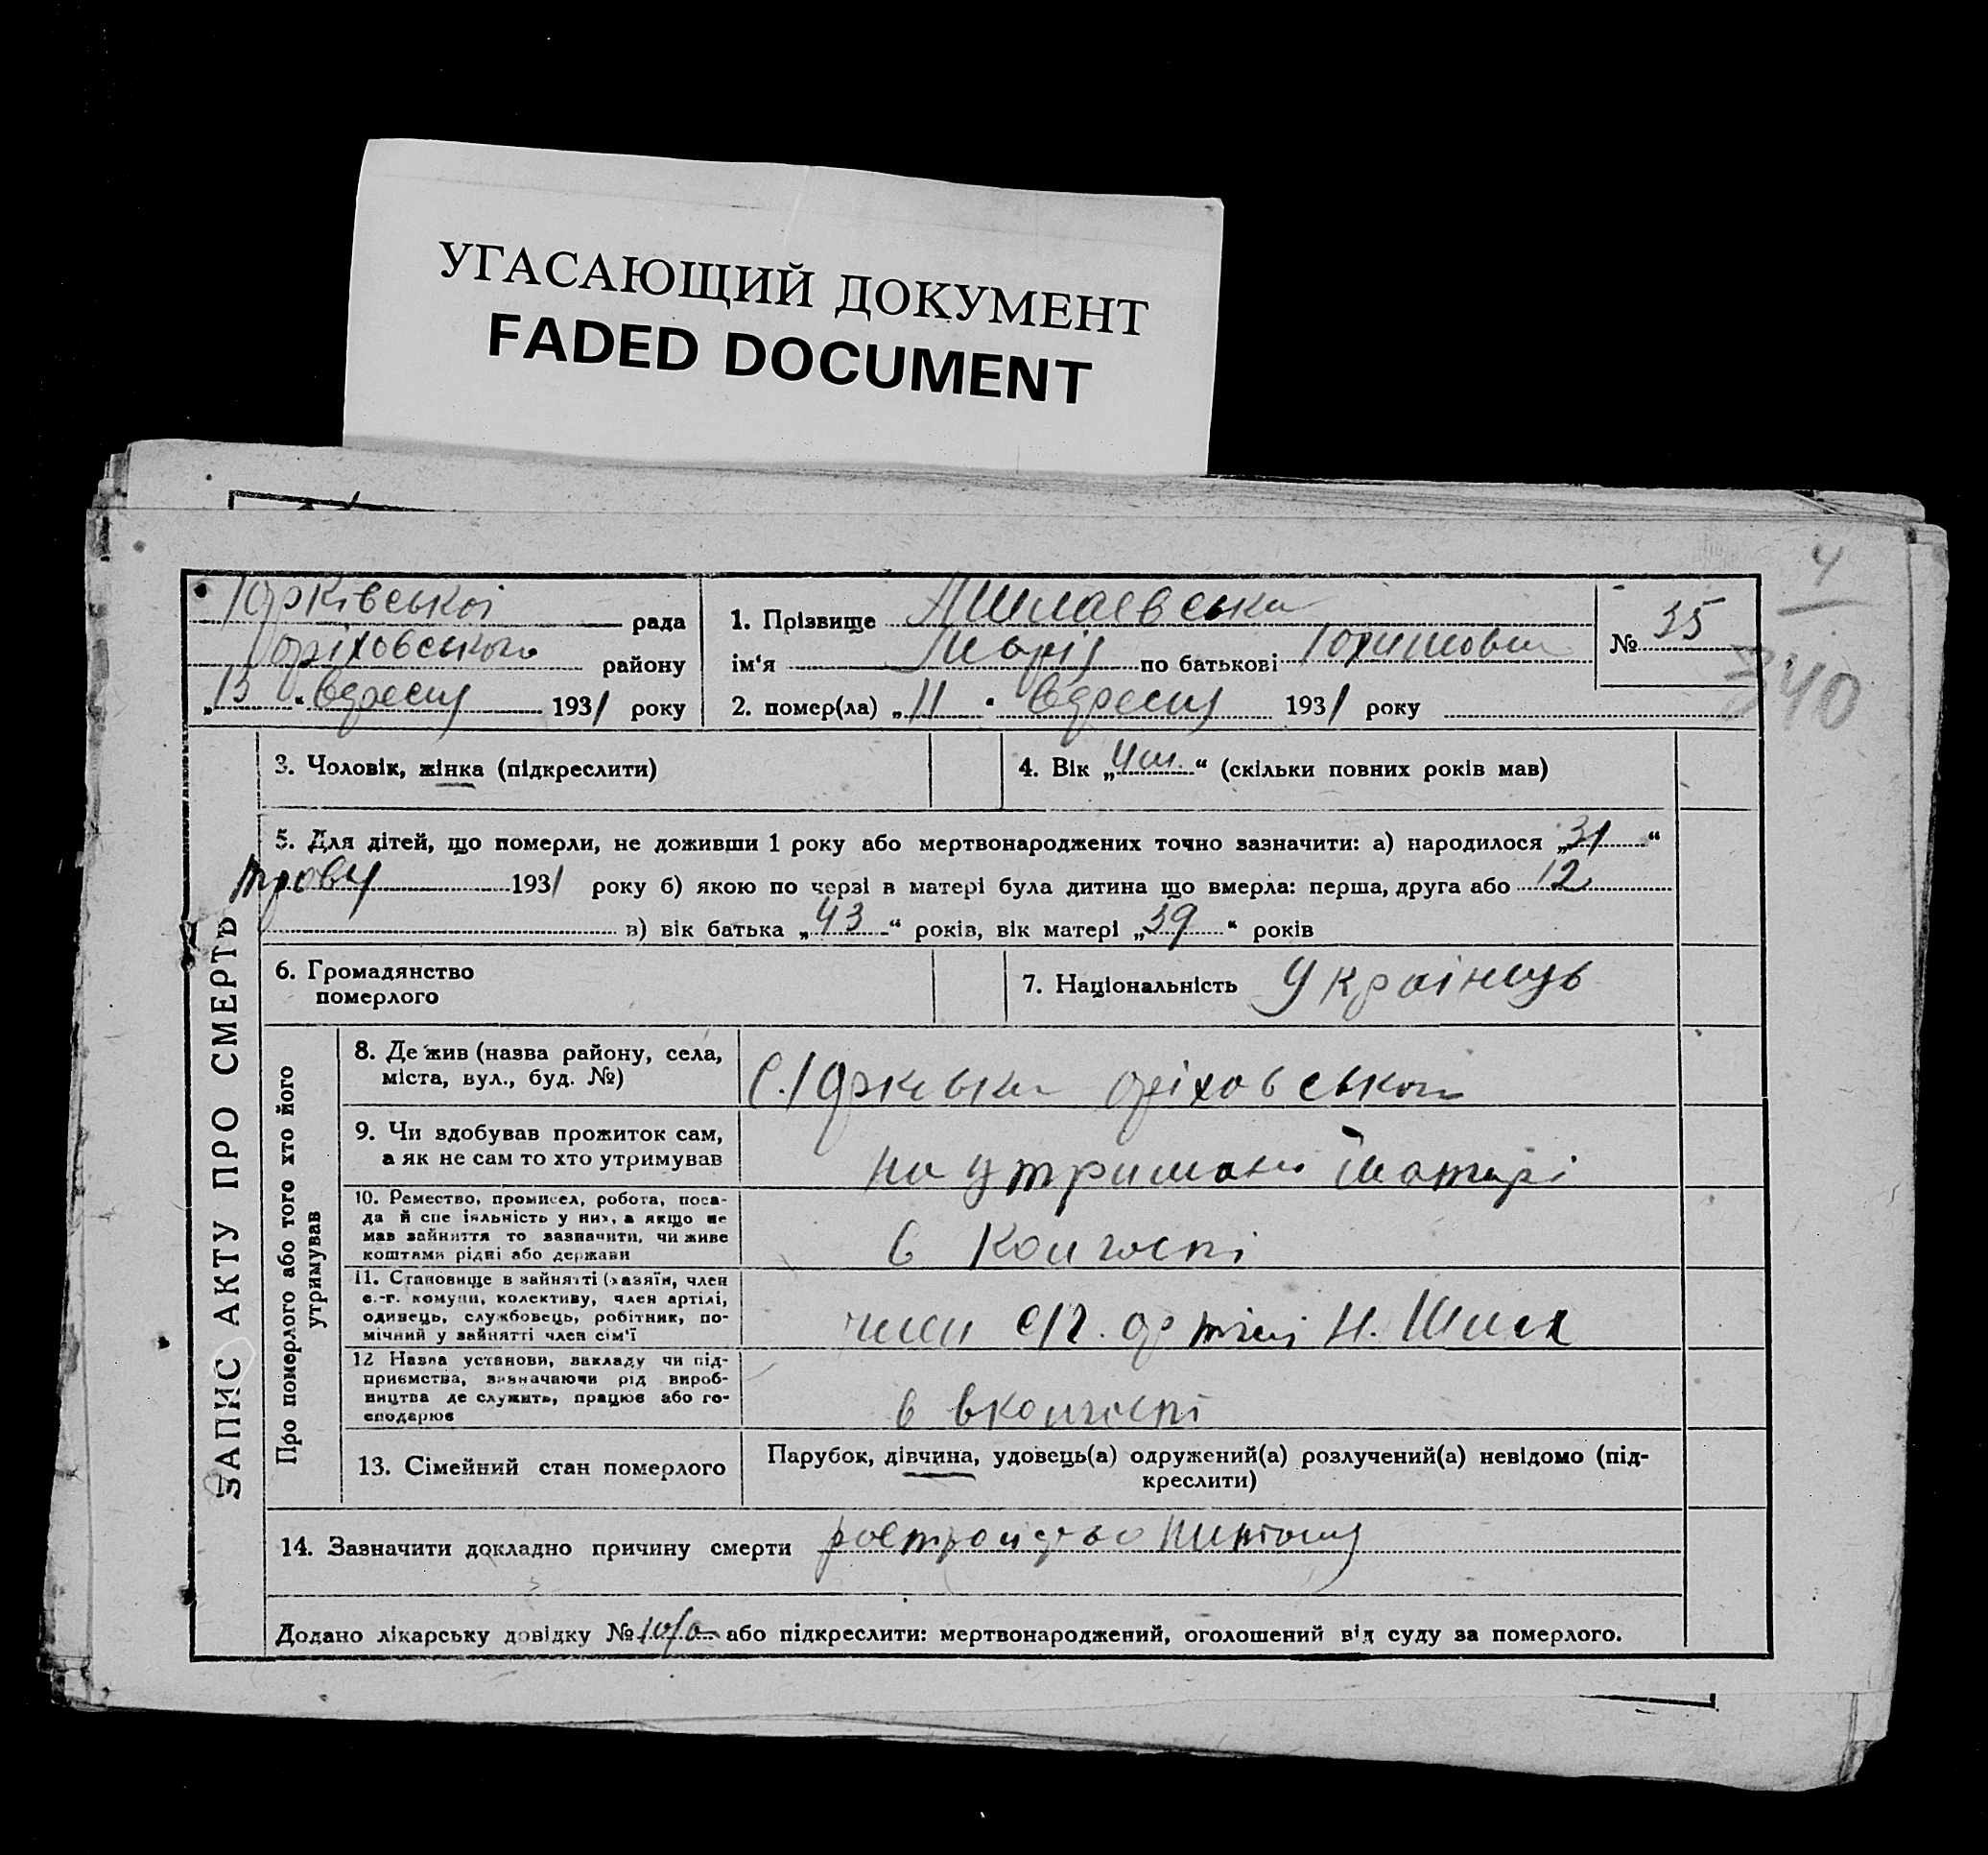 УГАСАЮЩИЙ ДОКУМЕНТ
FADED DOCUMENT
4
340
Юрківської рада
Оріховського району
„13“ вересня 1931 року
1. Прізвище
ім‘я Марія по батькові Юхимовна
2. помер(ла) „11“ вересня 1931 року
№ 35
ЗАПИС АКТУ ПРО СМЕРТЬ
3. Чоловік, жінка (підкреслити)
4. Вік „4 м.“ (скільки повних років мав)
5. Для дітей, що померли, не доживши 1 року або мертвонароджених точно зазначити: а) народилося „31“
травня 1931 року б) якою по черзі в матері була дитина що вмерла: перша, друга або 12
в) вік батька „43“ років, вік матері „39“ років
6. Громадянство
померлого
7. Національність Українець
Про померлого або того хто його
утримував
8. Де жив (назва району, села,
міста, вул., буд. №)
с. Юрківка Оріховського
9. Чи здобував прожиток сам,
а як не сам то хто утримував
на утримані матері
10. Ремество, промисел, робота, поса-
да й спеціяльність у них, а якщо не
мав зайняття то зазначити, чи живе
коштами рідні або держави
в колгоспі
11. Становище в зайнятті (хазяїн, член
с.-г. комуни, колективу, член артілі,
одинець, службовець, робітник, по-
мічний у зайнятті член сім'ї
член с/г. артілі Н. Шлях
12 Назва установи, закладу чи під-
приємства, зазначаючи рід вироб-
ництва де служить, працює або го-
сподарює
в вколгоспі
13. Сімейний стан померлого
Парубок, дівчина, удовець(а) одружений(а) розлучений(а) невідомо (під-
креслити)
14. Зазначити докладно причину смерти
Додано лікарську довідку № або підкреслити: мертвонароджений, оголошений від суду за померлого.